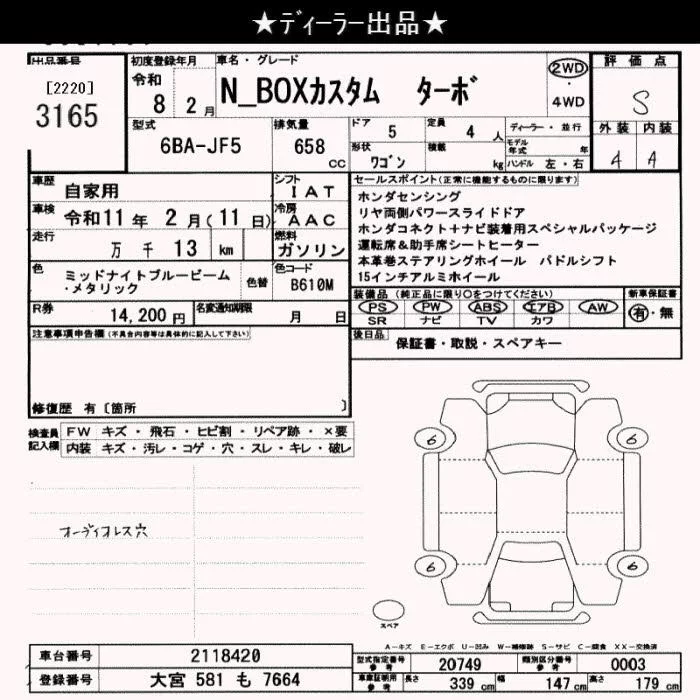 ★ディーラー出品★
出品番号
[2220]
3165
初度登録年月
令和
8 2月
車名・グレード
N_BOXカスタム ターボ
2WD
・
4WD
評価点
S
外装 内装
4 A
型式
6BA-JF5
排気量
658
cc
ドア 5
定員 4 人
形状 ワゴン
積載 kg
ディーラー・並行
モデル年式 年
ハンドル 左・右
車歴 自家用
シフト IAT
車検 令和11年 2月(11日)
冷房 AAC
走行 万 千 13 km
燃料 ガソリン
色 ミッドナイトブルービーム・メタリック
色替
色コード B610M
R券 14,200円
名変通知期限 月 日
セールスポイント(正常に機能するものに限ります)
ホンダセンシング
リヤ両側パワースライドドア
ホンダコネクト+ナビ装着用スペシャルパッケージ
運転席&助手席シートヒーター
本革巻ステアリングホイール パドルシフト
15インチアルミホイール
装備品 (純正品に限り○をつけてください)
新車保証書
PS PW ABS エアB AW
SR ナビ TV カワ
有・無
後日品
保証書・取説・スペアキー
注意事項申告欄(不具合内容等は具体的に記入して下さい)
修復歴 有〔箇所 〕
検査員記入欄
FW キズ・飛石・ヒビ割・リペア跡・×要
内装 キズ・汚レ・コゲ・穴・スレ・キレ・破レ
オーディオレス穴
6 6
6 6
スペア
A-キズ E-エクボ U-凹み W-補修跡 S-サビ C-腐食 XX-交換済
車台番号 2118420
登録番号 大宮 581 も 7664
型式指定番号 参考 20749
類別区分番号 参考 0003
車庫証明用 参考 長さ 339 cm 幅 147 cm 高さ 179 cm